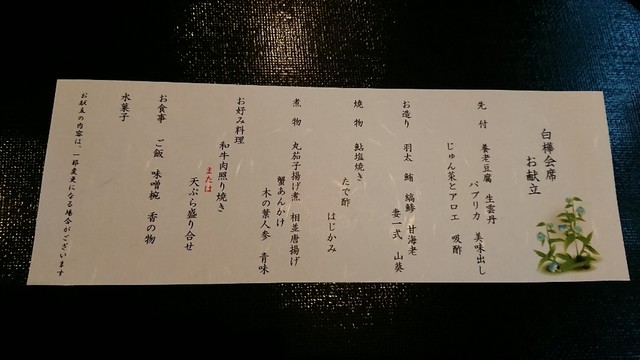 白樺会席
お献立
先付 養老豆腐 生雲丹
パプリカ 美味出し
じゅん菜とアロエ 吸酢
お造り 羽太 鮪 縞鯵 甘海老
妻一式 山葵
焼物 鮎塩焼き
たで酢 はじかみ
煮物 丸茄子揚げ煮 相並唐揚げ
蟹あんかけ
木の葉人参 青味
お好み料理
和牛肉照り焼き
または
天ぷら盛り合せ
お食事 ご飯 味噌椀 香の物
水菓子
お献立の内容は、一部変更になる場合がございます